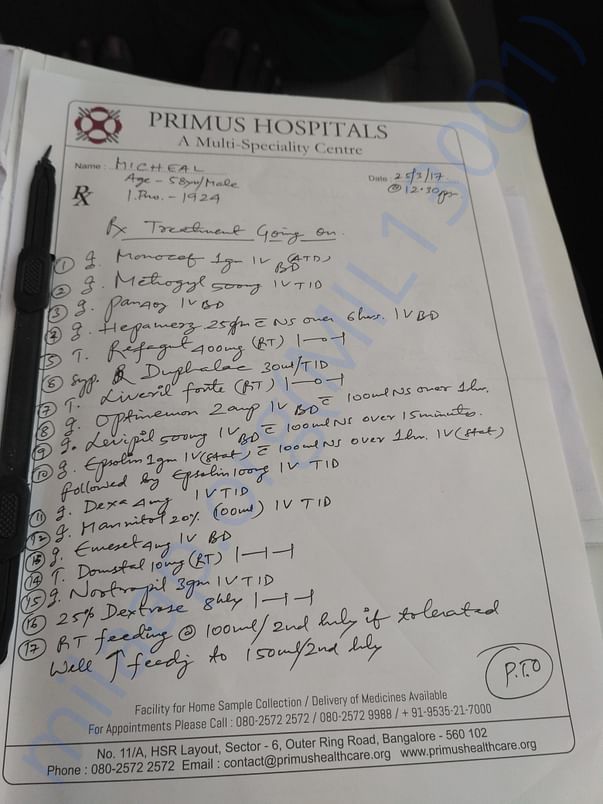 PRIMUS HOSPITALS
A Multi-Speciality Centre
Name : MICHEAL
Age - 58yrs/Male
I.P.no. - 1924
Date : 25/3/17
@ 12.30pm
Rx
Rx Treatment Going on.
① Ɉ. Monocef 1gm IV BD (ATD)
② Ɉ. Methogyl 500mg IV TID
③ Ɉ. Pan 40g IV BD
④ Ɉ. Hepamerz 25gm c̄ NS over 6hrs. IV BD
⑤ T. Refagut 400mg (RT) 1—0—1
⑥ Syp. Duphalac 30ml/TID
⑦ T. Liveril forte (RT) 1—0—1
⑧ Ɉ. Optineuron 2amp IV BD c̄ 100ml NS over 1hr.
⑨ Ɉ. Levipil 500mg IV BD c̄ 100ml NS over 15minutes.
⑩ Ɉ. Epsolin 1gm IV (stat) c̄ 100ml NS over 1hr. IV (stat)
followed by Epsolin 100mg IV TID
⑪ Ɉ. Dexa 4mg IV TID
⑫ Ɉ. Mannitol 20% (100ml) IV TID
⑬ Ɉ. Emeset 4mg IV BD
⑭ T. Domstal 10mg (RT) 1—1—1
⑮ Ɉ. Nootropil 3gm IV TID
⑯ 25% Dextrose 8hly 1—1—1
⑰ RT feeding @ 100ml/2nd hrly if tolerated
Well ↑ feedg to 150ml/2nd hly
P.T.O
Facility for Home Sample Collection / Delivery of Medicines Available
For Appointments Please Call : 080-2572 2572 / 080-2572 9988 / + 91-9535-21-7000
No. 11/A, HSR Layout, Sector - 6, Outer Ring Road, Bangalore - 560 102
Phone : 080-2572 2572 Email : contact@primushealthcare.org www.primushealthcare.org